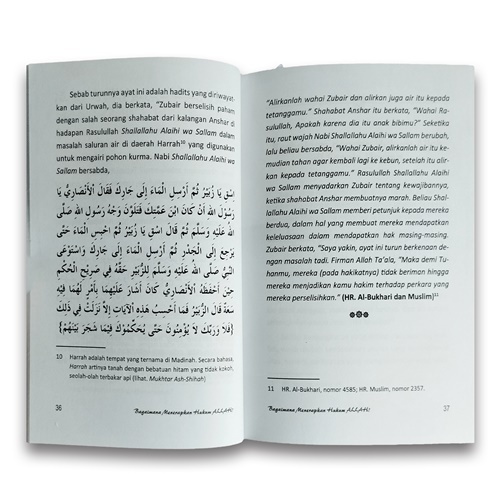 Sebab turunnya ayat ini adalah hadits yang diriwayat-
kan dari Urwah, dia berkata, "Zubair berselisih paham
dengan salah seorang shahabat dari kalangan Anshar di
hadapan Rasulullah Shallallahu Alaihi wa Sallam dalam
masalah saluran air di daerah Harrah10 yang digunakan
untuk mengairi pohon kurma. Nabi Shallallahu Alaihi wa
Sallam bersabda,
اسْقِ يَا زُبَيْرُ ثُمَّ أَرْسِلِ الْمَاءَ إِلَى جَارِكَ فَقَالَ الْأَنْصَارِيُّ يَا
رَسُولَ اللهِ أَنْ كَانَ ابْنَ عَمَّتِكَ فَتَلَوَّنَ وَجْهُ رَسُولِ اللهِ صَلَّى
اللهُ عَلَيْهِ وَسَلَّمَ ثُمَّ قَالَ اسْقِ يَا زُبَيْرُ ثُمَّ احْبِسِ الْمَاءَ حَتَّى
يَرْجِعَ إِلَى الْجَدْرِ ثُمَّ أَرْسِلِ الْمَاءَ إِلَى جَارِكَ وَاسْتَوْعَى
النَّبِيُّ صَلَّى اللهُ عَلَيْهِ وَسَلَّمَ لِلزُّبَيْرِ حَقَّهُ فِي صَرِيْحِ الْحُكْمِ
حِيْنَ أَحْفَظَهُ الْأَنْصَارِيُّ كَانَ أَشَارَ عَلَيْهِمَا بِأَمْرٍ لَهُمَا فِيْهِ
سَعَةٌ قَالَ الزُّبَيْرُ فَمَا أَحْسِبُ هَذِهِ الْآيَاتِ إِلَّا نَزَلَتْ فِي ذَلِكَ
{فَلَا وَرَبِّكَ لَا يُؤْمِنُونَ حَتَّى يُحَكِّمُوكَ فِيْمَا شَجَرَ بَيْنَهُمْ}
10 Harrah adalah tempat yang ternama di Madinah. Secara bahasa,
Harrah artinya tanah dengan bebatuan hitam yang tidak kokoh,
seolah-olah terbakar api (lihat. Mukhtar Ash-Shihah)
36 Bagaimana Menerapkan Hukum ALLAH?
"Alirkanlah wahai Zubair dan alirkan juga air itu kepada
tetanggamu." Shahabat Anshar itu berkata, "Wahai Ra-
sulullah, Apakah karena dia itu anak bibimu?" Seketika
itu, raut wajah Nabi Shallallahu Alaihi wa Sallam berubah,
lalu beliau bersabda, "Wahai Zubair, alirkanlah air itu ke-
mudian tahan agar kembali lagi ke kebun, setelah itu alir-
kan ke tetanggamu." Rasulullah Shallallahu Alaihi
wa Sallam menyadarkan Zubair tentang kewajibannya,
ketika shahabat Anshar membuatnya marah. Beliau Shal-
lallahu Alaihi wa Sallam memberi petunjuk kepada mereka
berdua, dalam hal yang memudahkan mereka mendapatkan
keleluasaan dalam mendapatkan hak masing-masing.
Zubair berkata, "Saya yakin, ayat ini turun berkenaan de-
ngan masalah tadi. Firman Allah Ta'ala, "Maka demi Tu-
hanmu, mereka (pada hakikatnya) tidak beriman hingga
mereka menjadikan kamu hakim terhadap perkara yang
mereka perselisihkan." (HR. Al-Bukhari dan Muslim)11
11 HR. Al-Bukhari, nomor 4585; HR. Muslim, nomor 2357.
Bagaimana Menerapkan Hukum ALLAH? 37